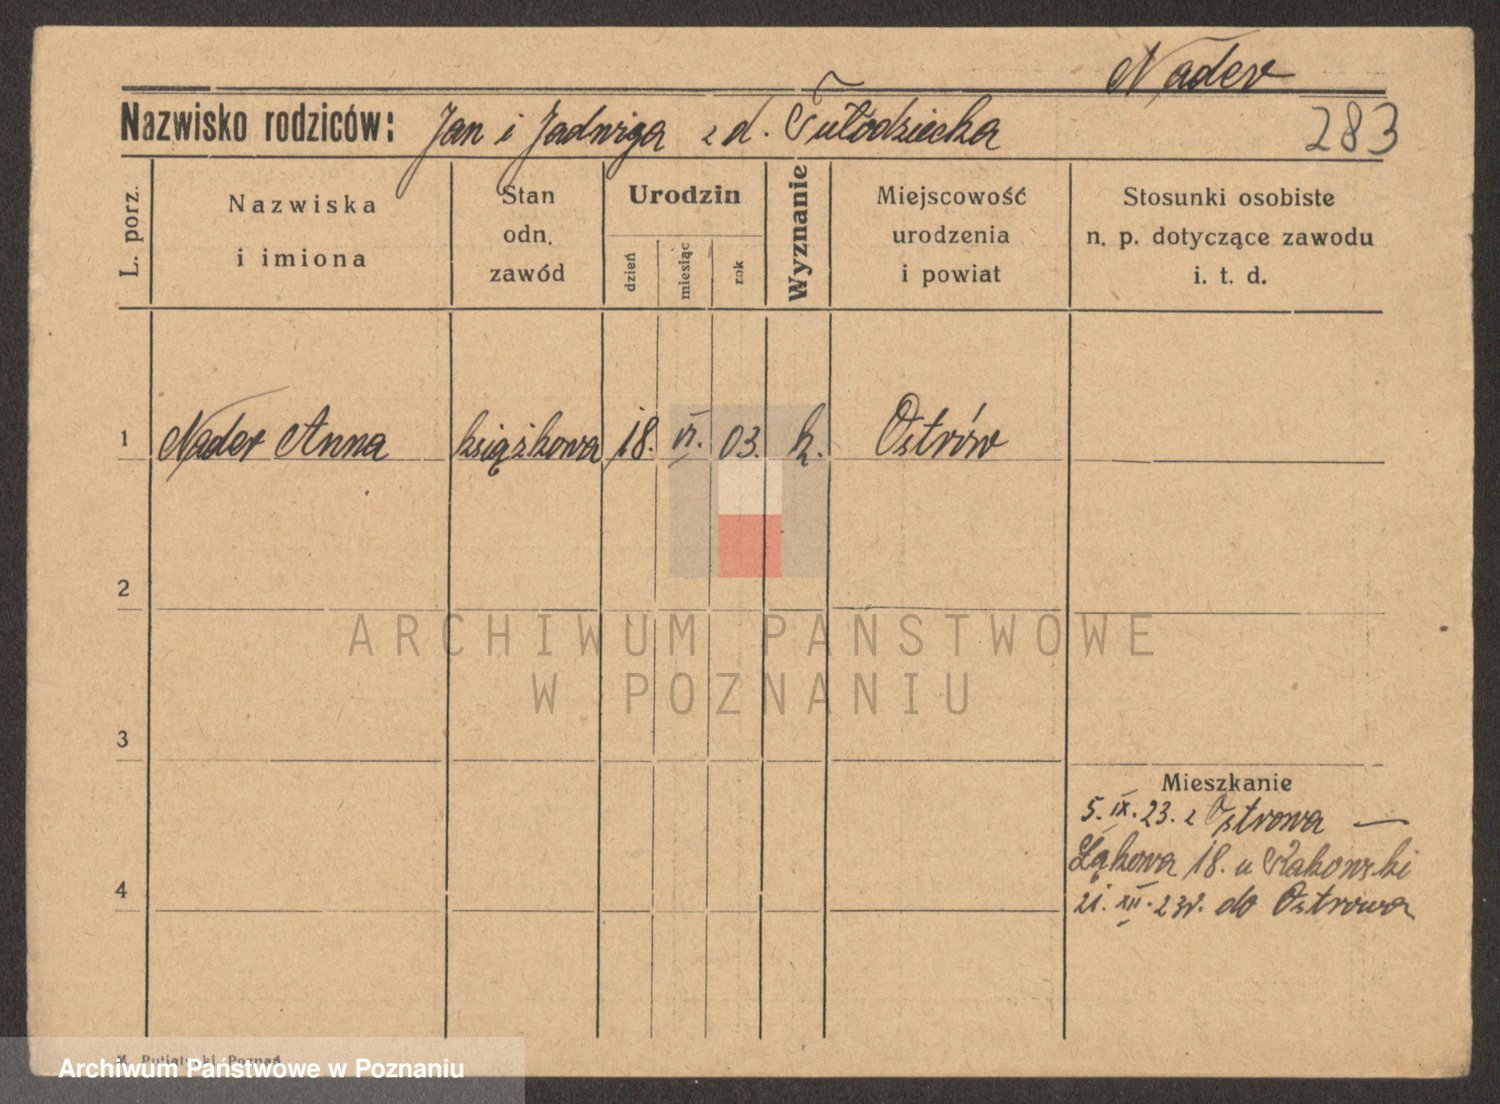 Nader
Nazwisko rodziców: Jan i Jadwiga z d. Tułodziecka
283
L. porz.
Nazwiska
i imiona
Stan
odn.
zawód
Urodzin
dzień
miesiąc
rok
Wyznanie
Miejscowość
urodzenia
i powiat
Stosunki osobiste
n. p. dotyczące zawodu
i. t. d.
1 Nader Anna książkowa 18. VI. 03. k. Ostrów
2
3
4
Mieszkanie
5. IX. 23. z Ostrowa —
Łąkowa 18. u
21. XII. 23r. do Ostrowa
ARCHIWUM PAŃSTWOWE
W POZNANIU
Poznań
Archiwum Państwowe w Poznaniu